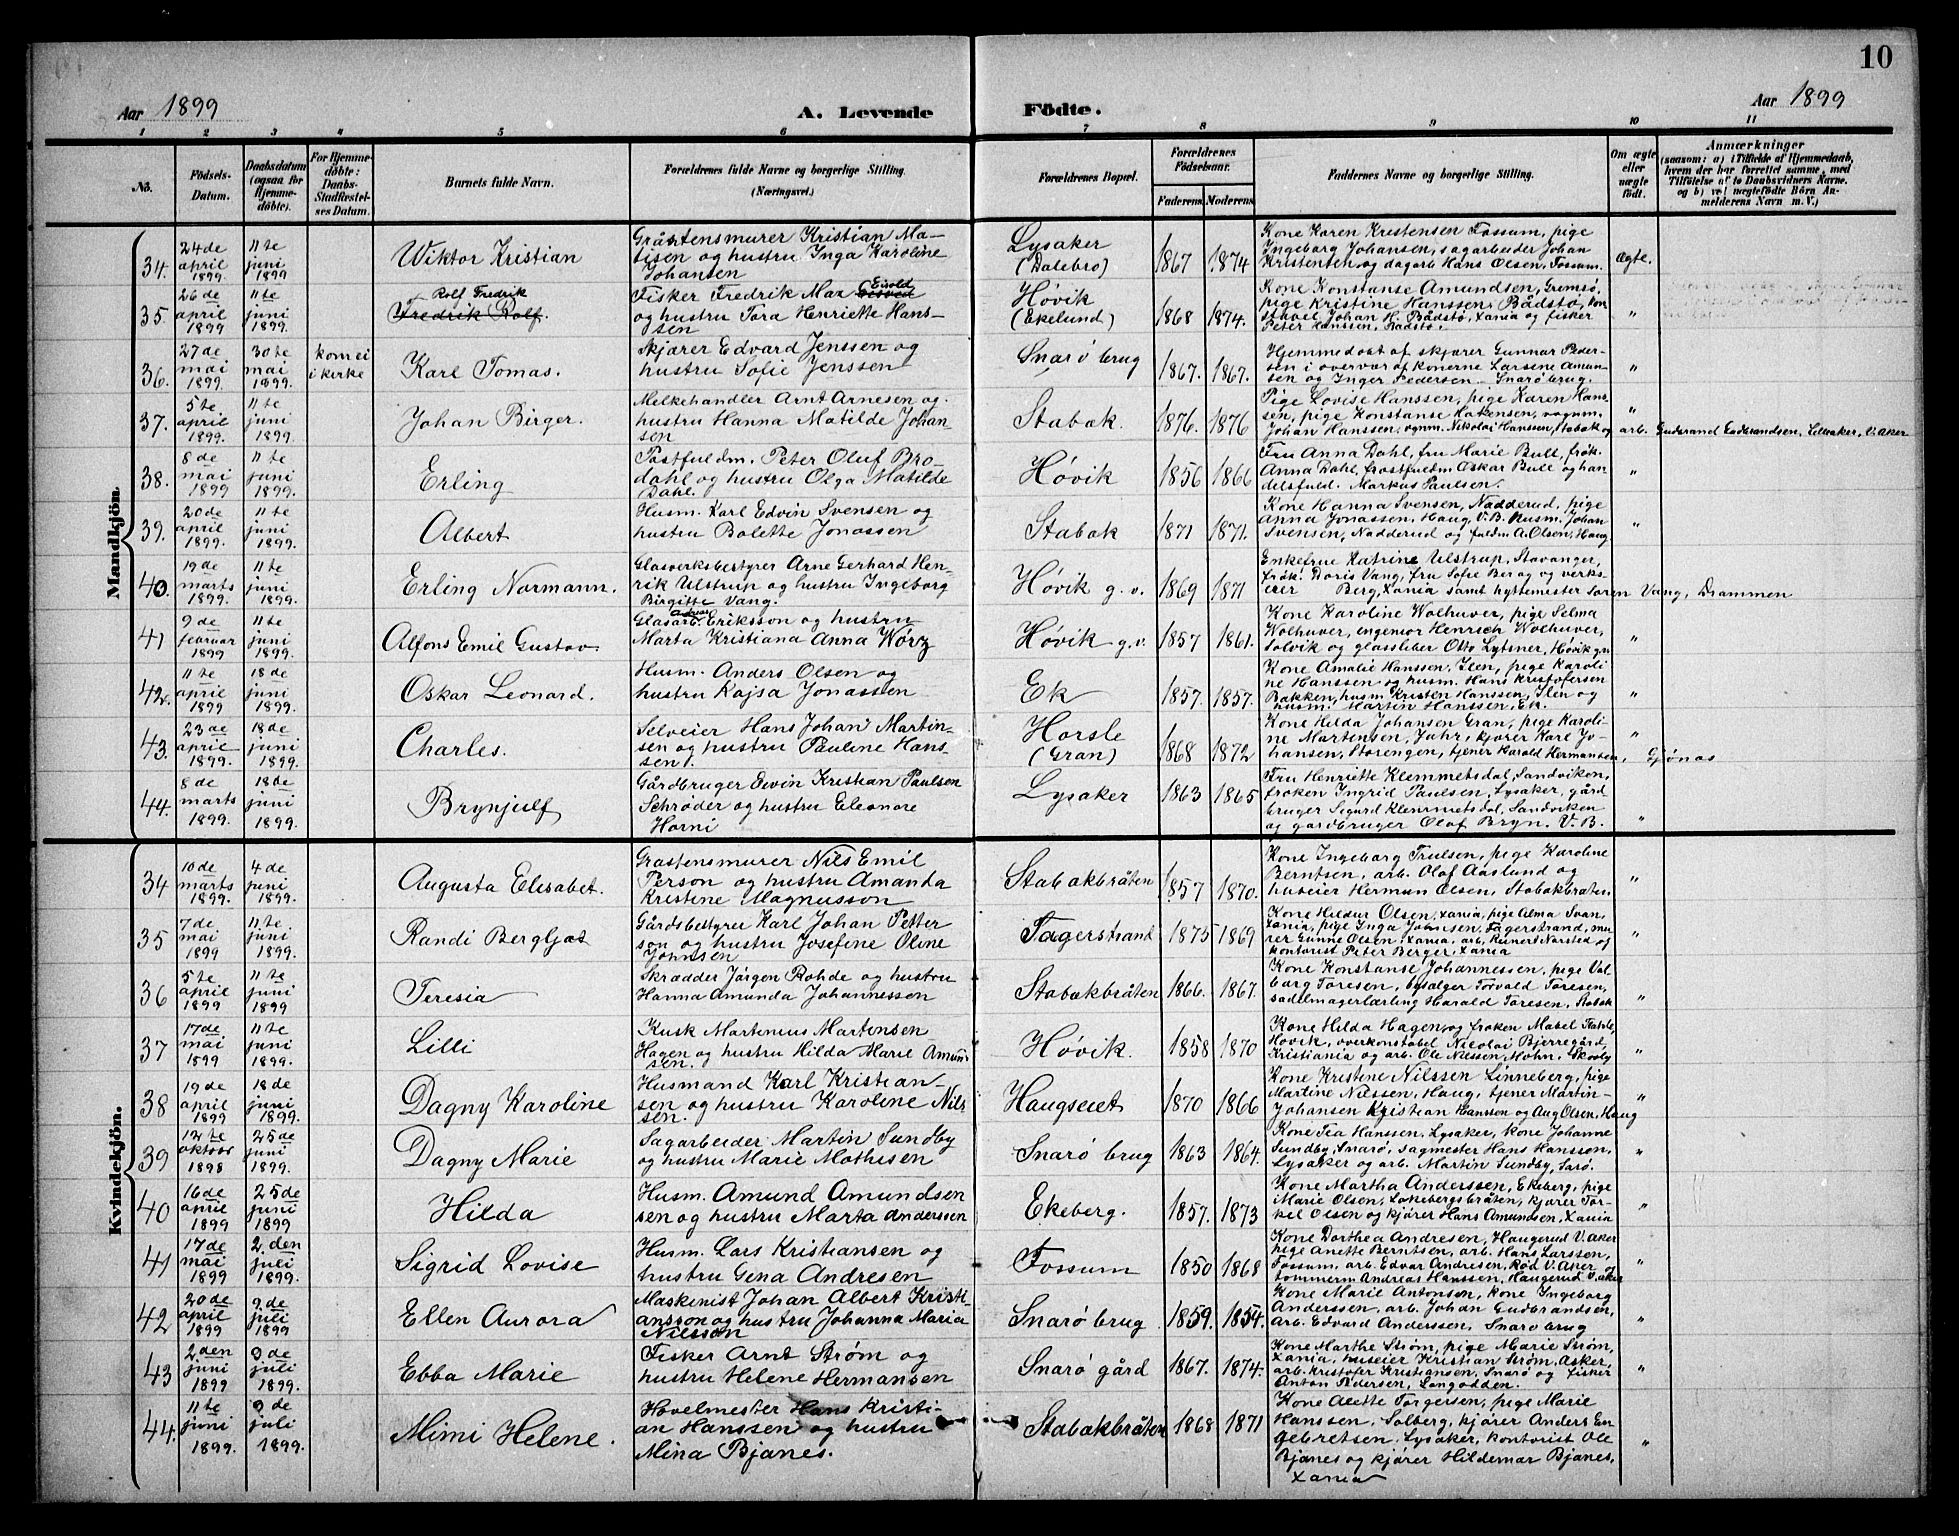 10
Aar 1899
A. Levende
Födte.
Aar 1899
1 2 3 4 5 6 7 8 9 10 11
No.
Födsels-
Datum.
Daabsdatum
(ogsaa for
Hjemme-
döbte).
For Hjemme-
döbte:
Daabs-
Stadfæstel-
ses Datum.
Barnets fulde Navn.
Forældrenes fulde Navne og borgerlige Stilling.
(Næringsvei.)
Forældrenes Bopæl.
Forældrenes
Födselsaar.
Faderens Moderens
Faddernes Navne og borgerlige Stilling.
Om ægte
eller
uægte
födt.
Anmærkninger
(saasom: a) i Tilfælde af Hjemmedaab,
hvem der har forrettet samme, med
Tilföielse af to Daabsvidners Navne.
og b) ved uægtefödte Börn An-
melderens Navn m. V.)
Mandkjön.
34. 24de april 1899 11te juni 1899
Wiktor Kristian
Gråstensmurer Kristian Ma-
tisen og hustru Inga Karoline
Johansen
Lysaker
(Dalsbro)
1867 1874
Kone Karen Kristensen Fossum, pige
Ingeborg Johansen, sagarbeider Johan
Kristensen og dagarb. Hans Olsen, Fossum.
Ægte.
35. 26de april 1899 11te juni 1899.
Rolf Fredrik
Fredrik Rolf.
Fisker Fredrik Max Eivold
og hustru Tora Henriette Hans-
sen
Høvik
(Ekelund)
1868 1874.
Kone Konstanse Amundsen, Gremsø,
pige Kristine Hanssen, Bådstø, kon
stavel Johan H. Bådstø, Xania og fisker
Peter Hanssen, Bådstø.
"
36. 27de mai 1899. 30te mai 1899. kom ei i kirke
Karl Tomas.
Skjærer Edvard Jenssen og
hustru Sofie Jenssen
Snarø brug
1867. 1867.
Hjemmedøbt af skjærer Gunnar Peder-
sen i overvær af konerne Larsine Amun-
sen og Inger Pedersen - Snarø brug.
"
37. 5te april 1899. 11te juni 1899.
Johan Birger.
Melkehandler Arnt Arnesen og
hustru Hanna Matilde Johan-
sen
Stabak.
1876. 1876
Pige Lovise Hanssen, pige Karen Hans-
sen, pige Konstanse Håkensen, vognm.
Johan Hanssen, vgnm. Nikolai Hanssen, Stabak og arb. Gudbrand Gudbrandsen, Lilleaker, V. Aker
"
38. 8de mai 1899 11te juni 1899.
Erling
Postfuldm. Peter Oluf Bro-
dahl og hustru Olga Matilde
Dahl.
Høvik
1856 1866
Fru Anna Dahl, fru Marie Bull, frøk.
Anna Dahl, postfuldm Oskar Bull og han
delsfuld. Markus Paulsen.
"
39. 20de april 1899. 11te juni 1899.
Albert
Husm. Karl Edvin Svensen og
hustru Bolette Jonassen
Stabak
1871 1871.
Kone Hanna Svensen, Nadderud, pige
Anna Jonassen, Haug V.B. husm. Johan
Svensen, Nadderud og fuldm A. Olsen, Haug
"
40. 19de marts 1899. 11te juni 1899.
Erling Normann.
Glasverksbestyrer Arne Gerhard Hen-
rik Ulstrup og hustru Ingeborg
Birgitte Vang.
Høvik g.v.
1869 1871
Enkefrue Katrine Ulstrup, Stavanger,
frøk. Doris Vang, fru Sofie Berg og verks-
eier Berg, Xania samt hyttemester Søren Vang, Drammen
41 9de februar 1899 11te juni 1899.
Alfons Emil Gustav.
Glasarb. Andreas Eriksson og hustru
Marta Kristiana Anna Wörz
Høvik g.v.
1857 1861.
Kone Karoline Wolhuver, pige Selma
Wolhuver, engensør Henrich Wolhuver,
Solvik og glassliber Otto Lytsner, Høvik gv
"
42. 11te april 1899 18de juni 1899.
Oskar Leonard.
Husm. Anders Olsen og
hustru Kajsa Jonassen
Ek
1857. 1857.
Kone Amalie Hanssen, Ilen, pige Karoli
ne Hanssen og husm. Hans Kristofersen
Bakken, husm Kristen Hanssen, Ilen og
husm. Martin Hanssen, Ek.
"
43. 23de april 1899. 18de juni 1899.
Charles.
Selveier Hans Johan Martin-
sen og hustru Pauline Hans-
sen.
Horsle
(Gran)
1868 1872
Kone Hilda Johansen Gran, pige Karoli-
ne Martensen, Jahr, kjører Karl Jo-
hansen, Storengen, tjener Harold Hermansen, Gjønas
"
44. 8de marts 1899. 18de juni 1899.
Brynjulf
Gårdbruger Eivin Kristian Paulsen
Schrøder og hustru Eleonore
Horni
Lysaker
1863 1865
Fru Henriette Klemmetsdal, Sandviken,
frøken Ingrid Paulsen, Lysaker, gård
bruger Sigurd Klemmetsdal, Sandviken
og gårdbruger Olaf Bryn. V.B.
"
Kvindekjön.
34 10de marts 1899. 4de juni 1899.
Augusta Elisabet.
Gråstensmurer Nils Emil
Person og hustru Amanda
Kristine Magnusson
Stabakbråten
1857 1870.
Kone Ingeborg Trulsen, pige Karoline
Berntsen, arb. Olaf Aaslund og
huseier Herman Olsen, Stabakbråten.
"
35 7de mai 1899 11te juni 1899.
Randi Bergljot
Gårdsbestyrer Karl Johan Petter
son og hustru Josefine Oline
Johnsen
Fagerstrand
1875 1869
Kone Hildur Olsen, Xania, pige Alma Svan,
Xania, pige Inga Johnsen, Fagerstrand, mu-
rer Gunne Olsen, Xania, arb. Reinert Narsted og
kontorist Peter Berger, Xania
"
36 5te april 1899 11te juni 1899
Teresia
Skrædder Jørgen Rohde og hustru
Hanna Amunda Johannessen
Stabakbråten
1866. 1867.
Kone Konstanse Johannessen, pige Val
borg Toresen, bysælger Torvald Toresen,
sadelmagerlærling Harald Toresen, Stabak
"
37 17de mai 1899 11te juni 1899.
Lilli
Kusk Martinius Martensen
Hagen og hustru Hilda Marie Amun-
sen.
Høvik.
1858 1870
Kone Hilda Hagen og frøken Mabel
Høvik, overkonstabel Nicolai Bjerregård,
Kristiania og arb. Ole Nilssen Mohn, Skovby
"
38 19de april 1899 18de juni 1899.
Dagny Karoline
Husmand Karl Kristian-
sen og hustru Karoline Nils
sen.
Haugseiet
1870 1866
Kone Kristine Nilssen Linneberg, pige
Martine Nilssen, Haug, tjener Martin
Johansen Kristian Hanssen og Aug Olsen, Haug
"
39 12te oktobr 1898 25de juni 1899.
Dagny Marie
Sagarbeider Martin Sundby
og hustru Marie Mathisen
Snarø brug
1863 1864.
Kone Tea Hanssen, Lysaker, kone Johanne
Sundby, Snarø, sagmester Hans Hansson,
Lysaker og arb. Martin Sundby, Sarø.
"
40 16de april 1899 25de juni 1899
Hilda
Husm. Amund Amundsen
sen og hustru Marta Anderssen
Ekeberg.
1857. 1873
Kone Martha Anderssen, Ekeberg, pige
Marie Olsen, Løkebergsbråten, kjører Tor-
kil Olsen og kjører Hans Amundsen, Xania
"
41 17de mai 1899 2.den juli 1899.
Sigrid Lovise
Husm. Lars Kristiansen og
hustru Gina Andresen
Fossum
1850 1868
Kone Dorthea Andresen, Haugerud V. Aker
pige Anette Berntsen, arb. Hans Larssen,
Fossum, arb. Edvar Andresen, Rød V. Aker og
tømmerm Andreas Hanssen, Haugerud V. aker
"
42 20de april 1899 9.de juli 1899
Ellen Aurora
Maskinist Johan Albert Kristi-
ansson og hustru Johanna Maria
Nilsson
Snarø brug
1859. 1854.
Kone Marie Antonsen, kone Ingeborg
Anderssen, arb. Johan Gudbrandsen,
arb. Edvard Anderssen, Snarø brug
"
43 2.den juni 1899 9de juli 1899.
Ebba Marie
Fisker Arnt Strøm og
hustru Helene Hermansen
Snarø gård
1867. 1874.
Kone Marthe Strøm, pige Marie Strøm,
Xania, huseier Kristian Strøm, Asker,
arb. Kristofer Kristiansen, Snarø og fisker
Anton Pedersen, Langodden.
"
44. 11te juni 1899. 9de juli 1899.
Mimi Helene.
Høvelmester Hans Kristi-
an Hanssen og hustru
Mina Bjanes.
Stabakbråten
1868 1871
Kone Alette Torgersen, pige Marie
Hanssen, Solberg, kjører Anders En
gebretsen, Lysaker, kontorist Ole
Bjanes og kjører Hildemar Bjanes,
Xania
"